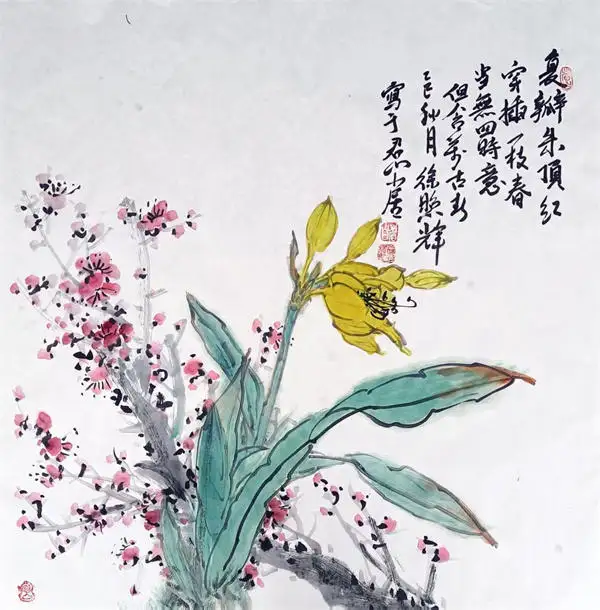 夏瓣朱頂紅
穿插一枝春
当無四時意
但含萬古新
乙巳秋月徐照輝
寫于君心居